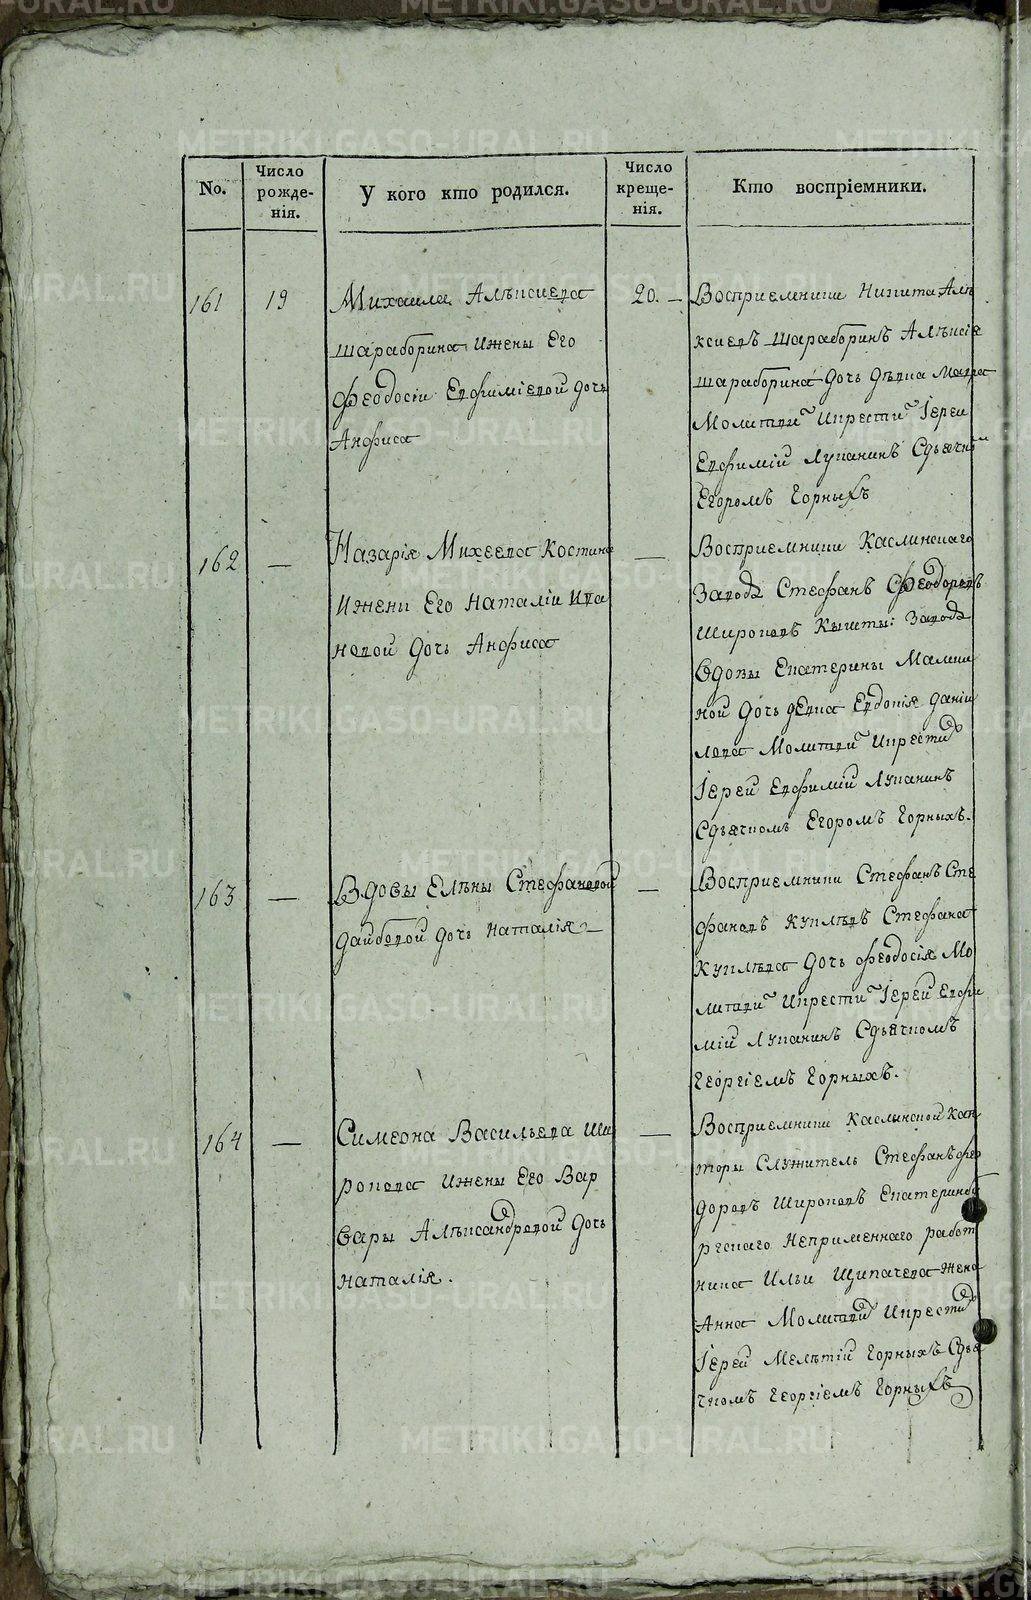 No.
Число рожде-нія.
У кого кто родился.
Число креще-нія.
Кто воспріемники.
161
19
Михаила Алѣксиева
Шараборина Ижены Его
Феодосіи Евфиміевой дочь
Анфиса
20.
Восприемники Никита Алѣ
ксиевъ Шараборинъ Алѣксія
Шараборина дочь дѣвка
Молитви Икрести Іереи
Евфимій Лупанинъ Сдьячк
Егоромъ Горныхъ
162
—
Назарія Михеева Костина
Ижени Его Наталіи Ива
новой дочь Анфиса
—
Восприемники Каслинскаго
Завода Стефанъ Феодоровъ
Широковъ Кышты: Завода
Вдовы Екатерины Малки
ной дочь дѣвка Евдокія Даніи
лова Молитви Икрестил
Іерей Евфимій Лупанинъ
Сдьячкомъ Егоромъ Горныхъ.
163
—
Вдовы Елѣны Стефановой
дочь Наталія
—
Восприемники Стефанъ Сте
фановъ Куклѣвъ Стефана
Куклѣва дочь Феодосія Мо
литви Икрести Іерей Евфи
мій Лупанинъ Сдьячкомъ
Георгіемъ Горныхъ.
164
—
Симеона Васильева Ши
рокова Ижены Его Вар
вары Алѣксандровой дочь
Наталія.
—
Восприемники Каслинской Кан
торы Служитель Стефанъ Фео
доровъ Широковъ Екатеринбу
ргскаго Неприменнаго работ
ника Ильи Щипачева Жена
Анна Молитвил Икрестил
Іерей Мелѣтій Горныхъ Сдья
чкомъ Георгіемъ Горныхъ
METRIKI.GASO-URAL.RU